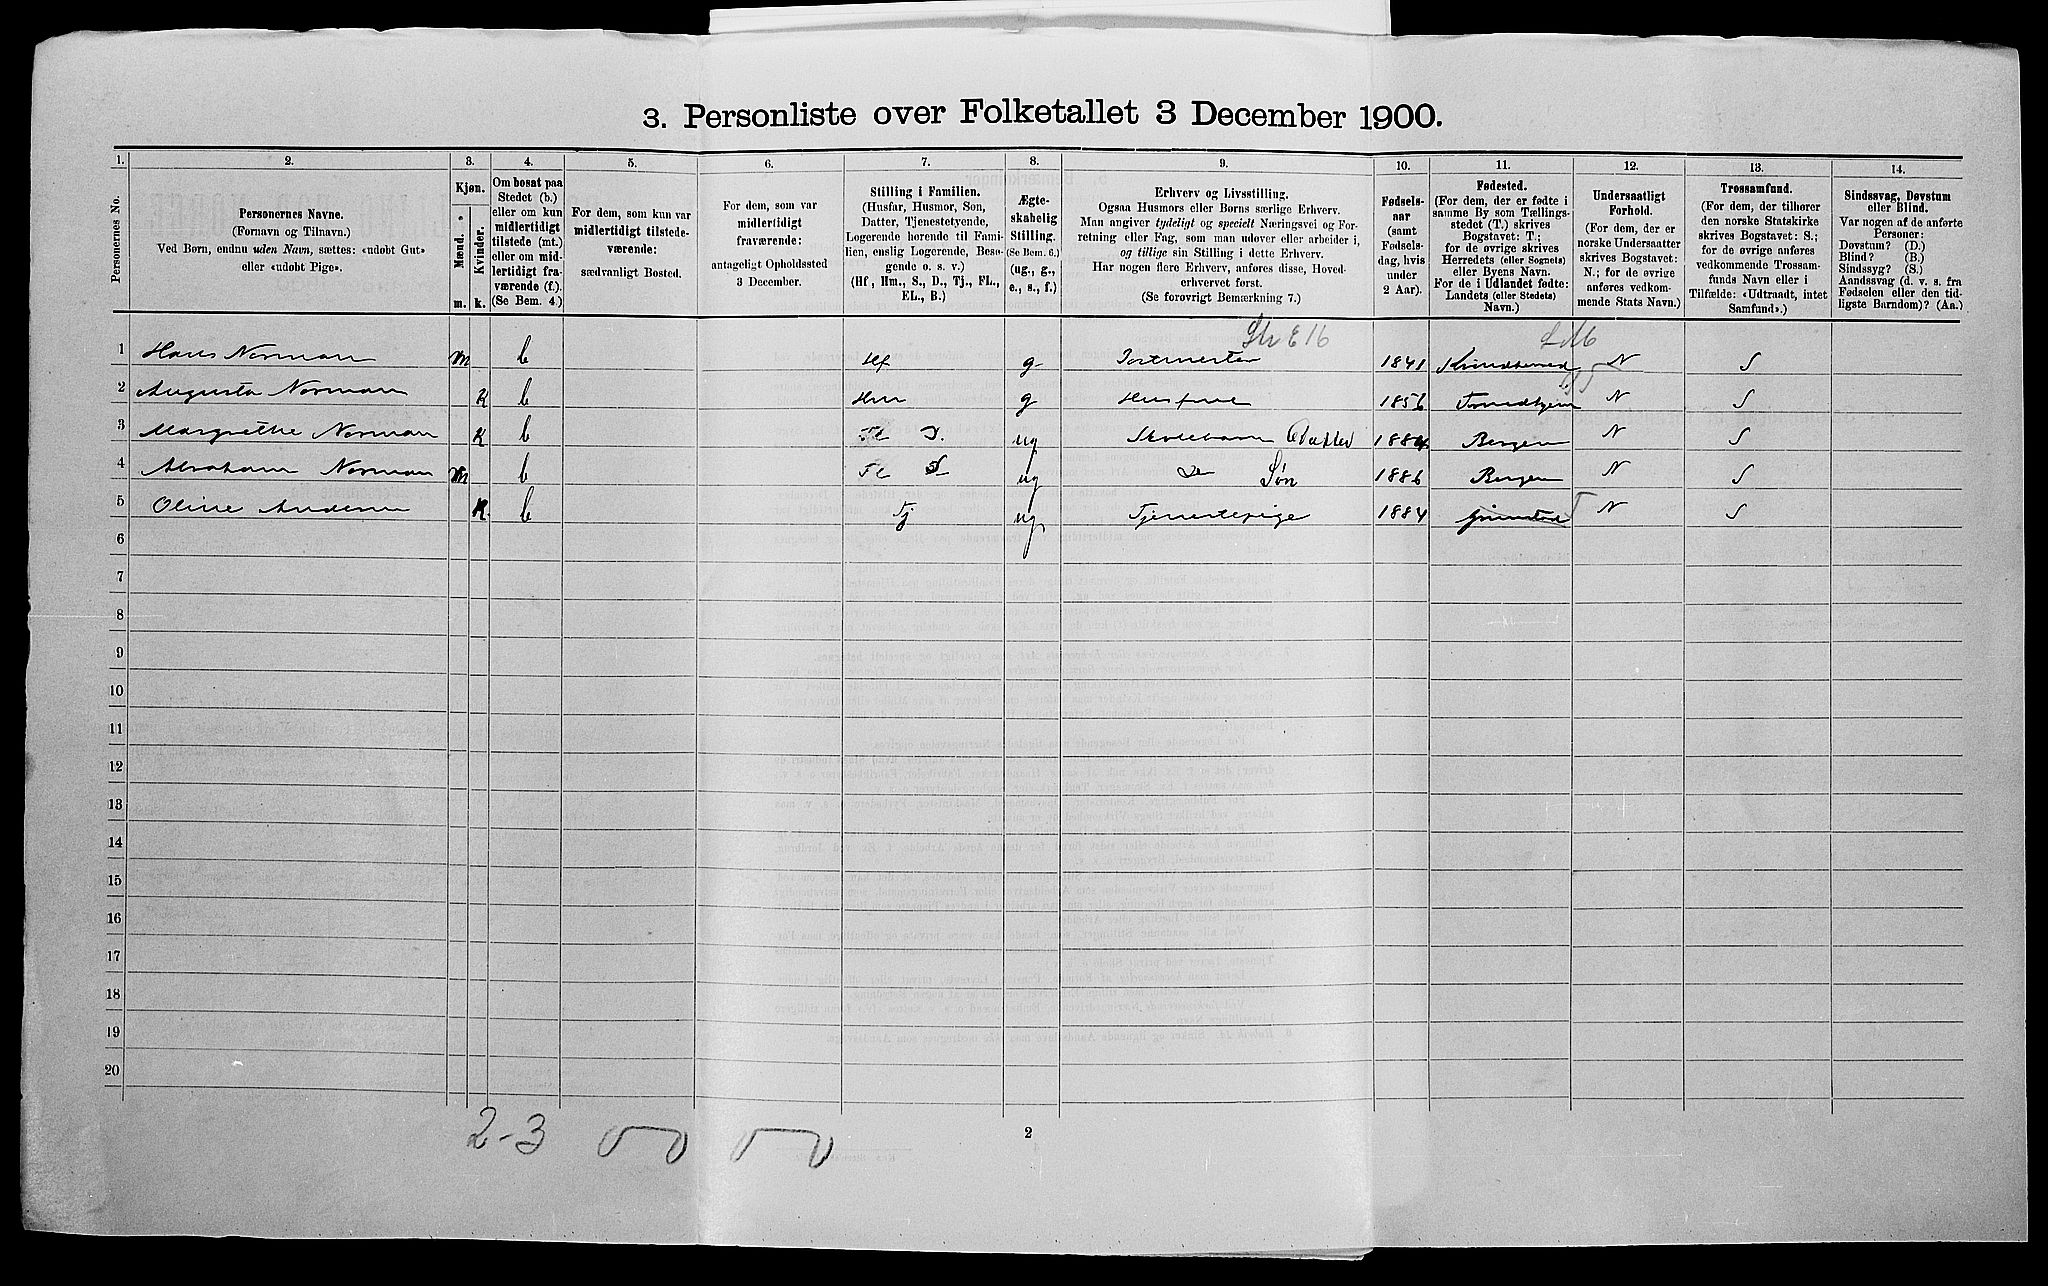 3. Personliste over Folketallet 3 December 1900.
1. 2. 3. 4. 5. 6. 7. 8. 9. 10. 11. 12. 13. 14.
Personernes No.
Personernes Navne.
(Fornavn og Tilnavn.)
Ved Børn, endnu uden Navn, sættes: «udøbt Gut»
eller «udøbt Pige».
Kjøn.
Mænd.
Kvinder.
m. k.
Om bosat paa
Stedet (b.)
eller om kun
midlertidigt
tilstede (mt.)
eller om mid-
lertidigt fra-
værende (f.)
(Se Bem. 4.)
For dem, som kun var
midlertidigt tilstede-
værende:
sædvanligt Bosted.
For dem, som var
midlertidigt
fraværende:
antageligt Opholdssted
3 December.
Stilling i Familien.
(Husfar, Husmor, Søn,
Datter, Tjenestetyende,
Logerende hørende til Fami-
lien, enslig Logerende, Besø-
gende o. s. v.)
(Hf, Hm., S., D., Tj., FL.,
EL., B.)
Ægte-
skabelig
Stilling.
(Se Bem. 6.)
(ug., g.,
e., s., f.)
Erhverv og Livsstilling.
Ogsaa Husmors eller Børns særlige Erhverv.
Man angiver tydeligt og specielt Næringsvei og For-
retning eller Fag, som man udøver eller arbeider i,
og tillige sin Stilling i dette Erhverv.
Har nogen flere Erhverv, anføres disse, Hoved-
erhvervet først.
(Se forøvrigt Bemærkning 7.)
Fødsels-
aar
(samt
Fødsels-
dag, hvis
under
2 Aar).
Fødested.
(For dem, der er fødte i
samme By som Tællings-
stedet (T.) skrives
Bogstavet: T.;
for de øvrige skrives
Herredets (eller Sognets)
eller Byens Navn.
For de i Udlandet fødte:
Landets (eller Stedets)
Navn.)
Undersaatligt
Forhold.
(For dem, der er
norske Undersaatter
skrives Bogstavet:
N.; for de øvrige
anføres vedkom-
mende Stats Navn.)
Trossamfund.
(For dem, der tilhører
den norske Statskirke
skrives Bogstavet: S.;
for de øvrige anføres
vedkommende Trossam-
funds Navn eller i
Tilfælde: «Udtraadt, intet
Samfund».)
Sindssvag, Døvstum
eller Blind.
Var nogen af de anførte
Personer:
Døvstum? (D.)
Blind? (B.)
Sindssyg? (S.)
Aandssvag (d. v. s. fra
Fødselen eller den tid-
ligste Barndom)? (Aa.)
1 Hans Norman m b Hf g Postmester 1841 N S
2 Augusta Norman K b Hm g Husfrue 1856 Trondhjem N S
3 Margrethe Norman K b Fl D. ug Skolebarn Datter 1884 Bergen N S
4 Abraham Norman m b Fl S ug Do Søn 1886 Bergen N S
5 Oline K b Tj ug. Tjenestepige 1884 Grimstad T N S
6
7
8
9
10
11
12
13
14
15
16
17
18
19
20
2-3
2